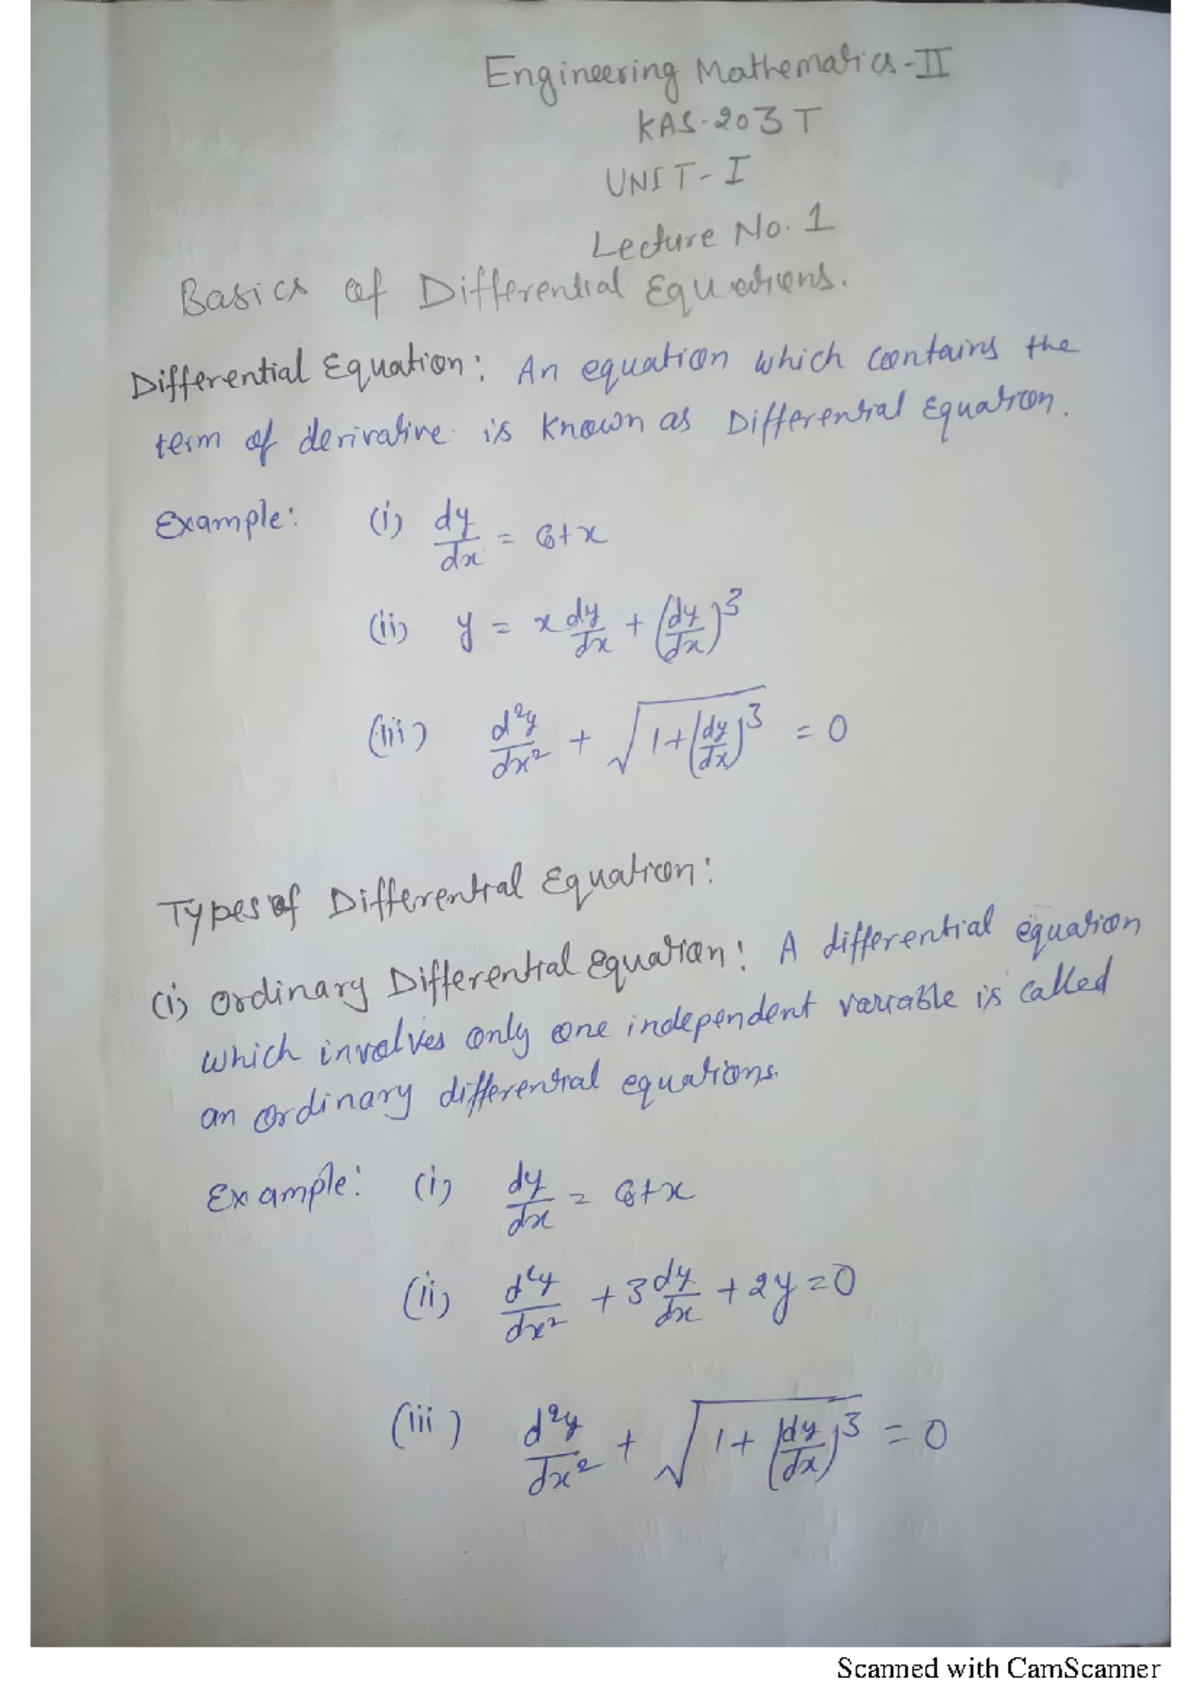 Engineering Mathematics-II
KAS-203T
UNIT-I
Lecture No. 1
Basics of Differential Equations.
Differential Equation: An equation which contains the
term of derivative is known as Differential Equation.
Example: (i) dy/dx = 6+x
(ii) y = x dy/dx + (dy/dx)^3
(iii) d²y/dx² + √(1+(dy/dx)^3) = 0
Types of Differential Equation:
(i) Ordinary Differential Equation: A differential equation
which involves only one independent variable is called
an ordinary differential equations.
Example: (i) dy/dx = 6+x
(ii) d²y/dx² + 3 dy/dx + 2y = 0
(iii) d²y/dx² + √(1+(dy/dx)^3) = 0
Scanned with CamScanner